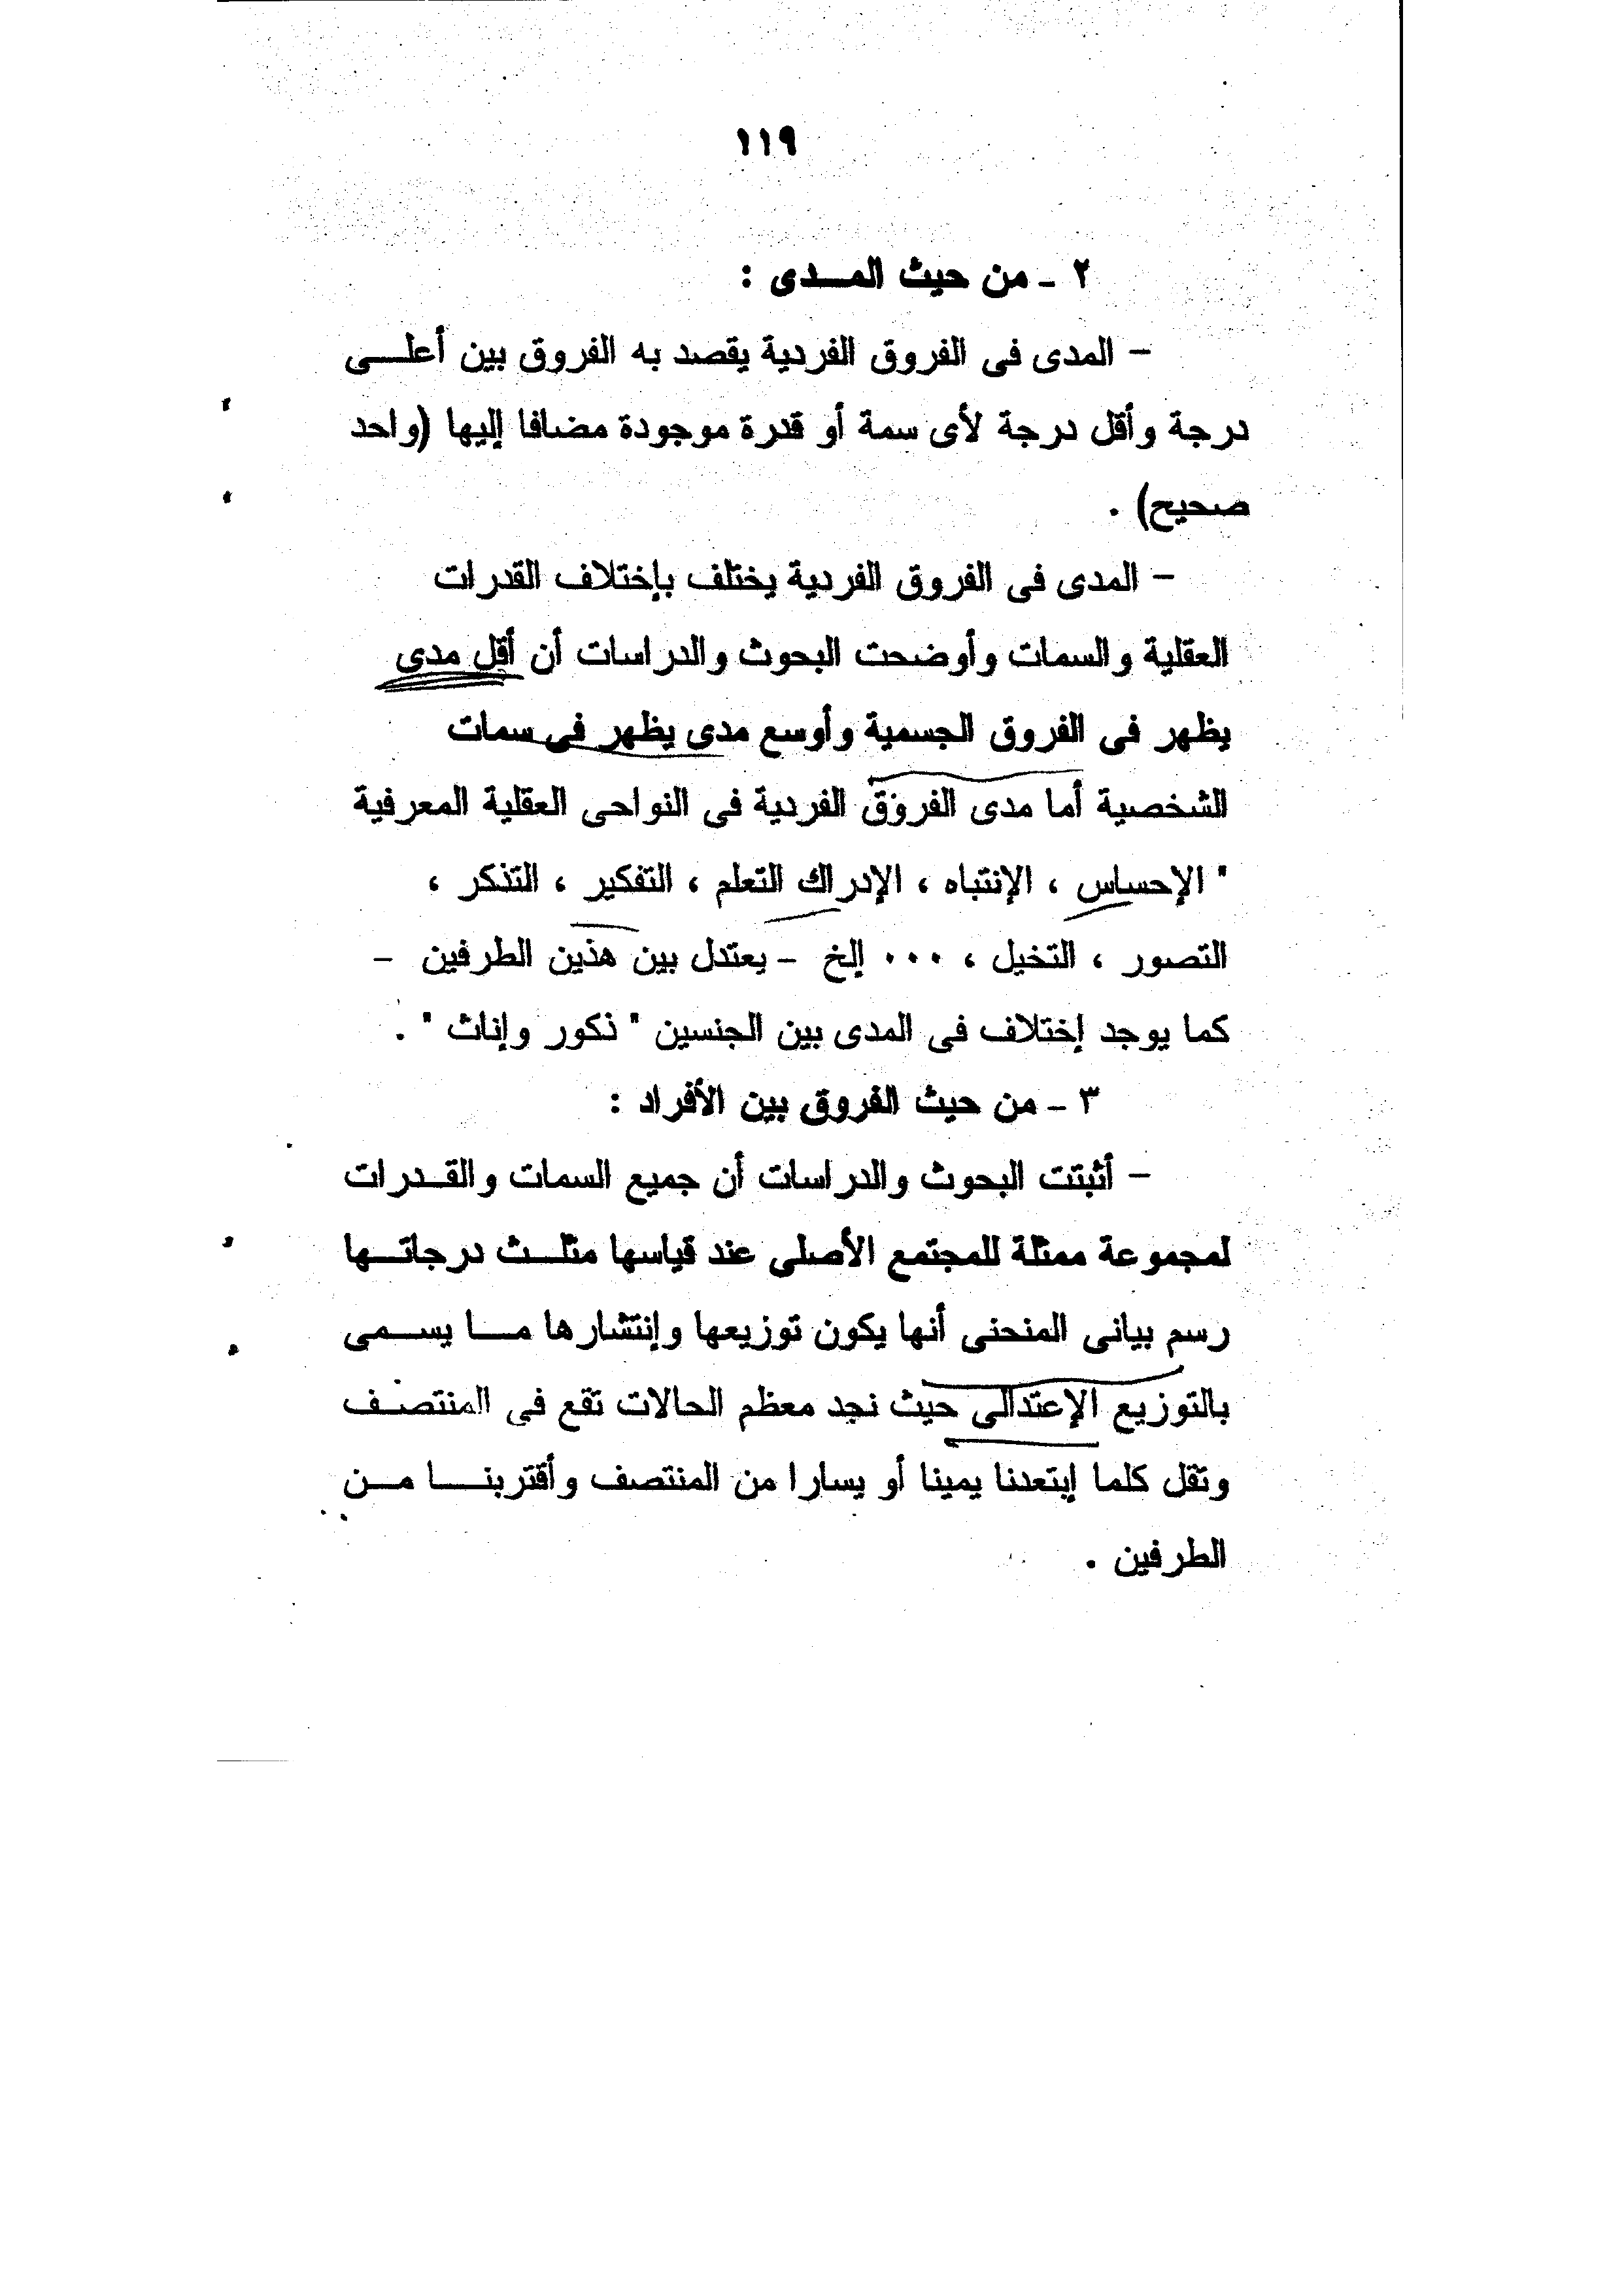 ١١٩
٢ ـ من حيث المـــدى :
– المدى فى الفروق الفردية يقصد به الفروق بين أعلـــى
درجة وأقل درجة لأى سمة أو قدرة موجودة مضافا إليها (واحد
صحيح) .
– المدى فى الفروق الفردية يختلف بإختلاف القدرات
العقلية والسمات وأوضحت البحوث والدراسات أن أقل مدى
يظهر فى الفروق الجسمية وأوسع مدى يظهر فى سمات
الشخصية أما مدى الفروق الفردية فى النواحى العقلية المعرفية
" الإحساس ، الإنتباه ، الإدراك التعلم ، التفكير ، التذكر ،
التصور ، التخيل ، ٠٠٠ إلخ – يعتدل بين هذين الطرفين –
كما يوجد إختلاف فى المدى بين الجنسين " ذكور وإناث " .
٣ ـ من حيث الفروق بين الأفراد :
– أثبتت البحوث والدراسات أن جميع السمات والقـدرات
لمجموعة ممثلة للمجتمع الأصلى عند قياسها مثلـــث درجاتـــها
رسم بيانى المنحنى أنها يكون توزيعها وإنتشارها مـــا يســـمى
بالتوزيع الإعتدالى حيث نجد معظم الحالات تقع فى المنتصـف
وتقل كلما إبتعدنا يمينا أو يسارا من المنتصف وأقتربنـــا مـــن
الطرفين .